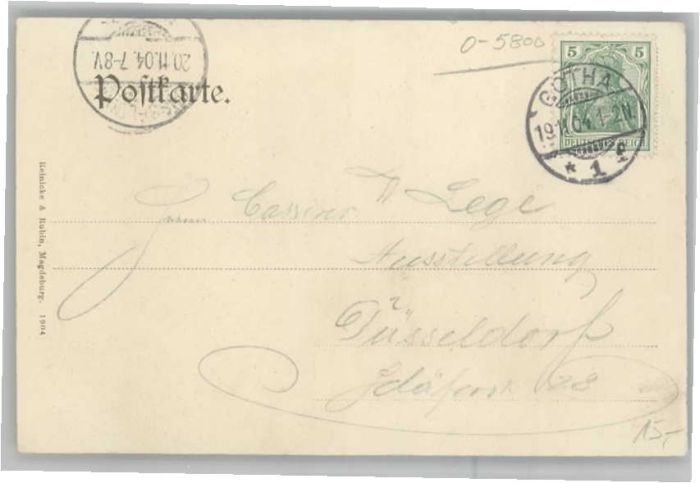 20.11.04. 7-8V.
0-5800
5 5
DEUTSCHES REICH
GOTHA
19.11.04. 1-2N.
* 1 f
Postkarte.
Herrn Cassirer W Lege
Ausstellung
Düsseldorf
28
15,-
Reinicke & Rubin, Magdeburg. 1904